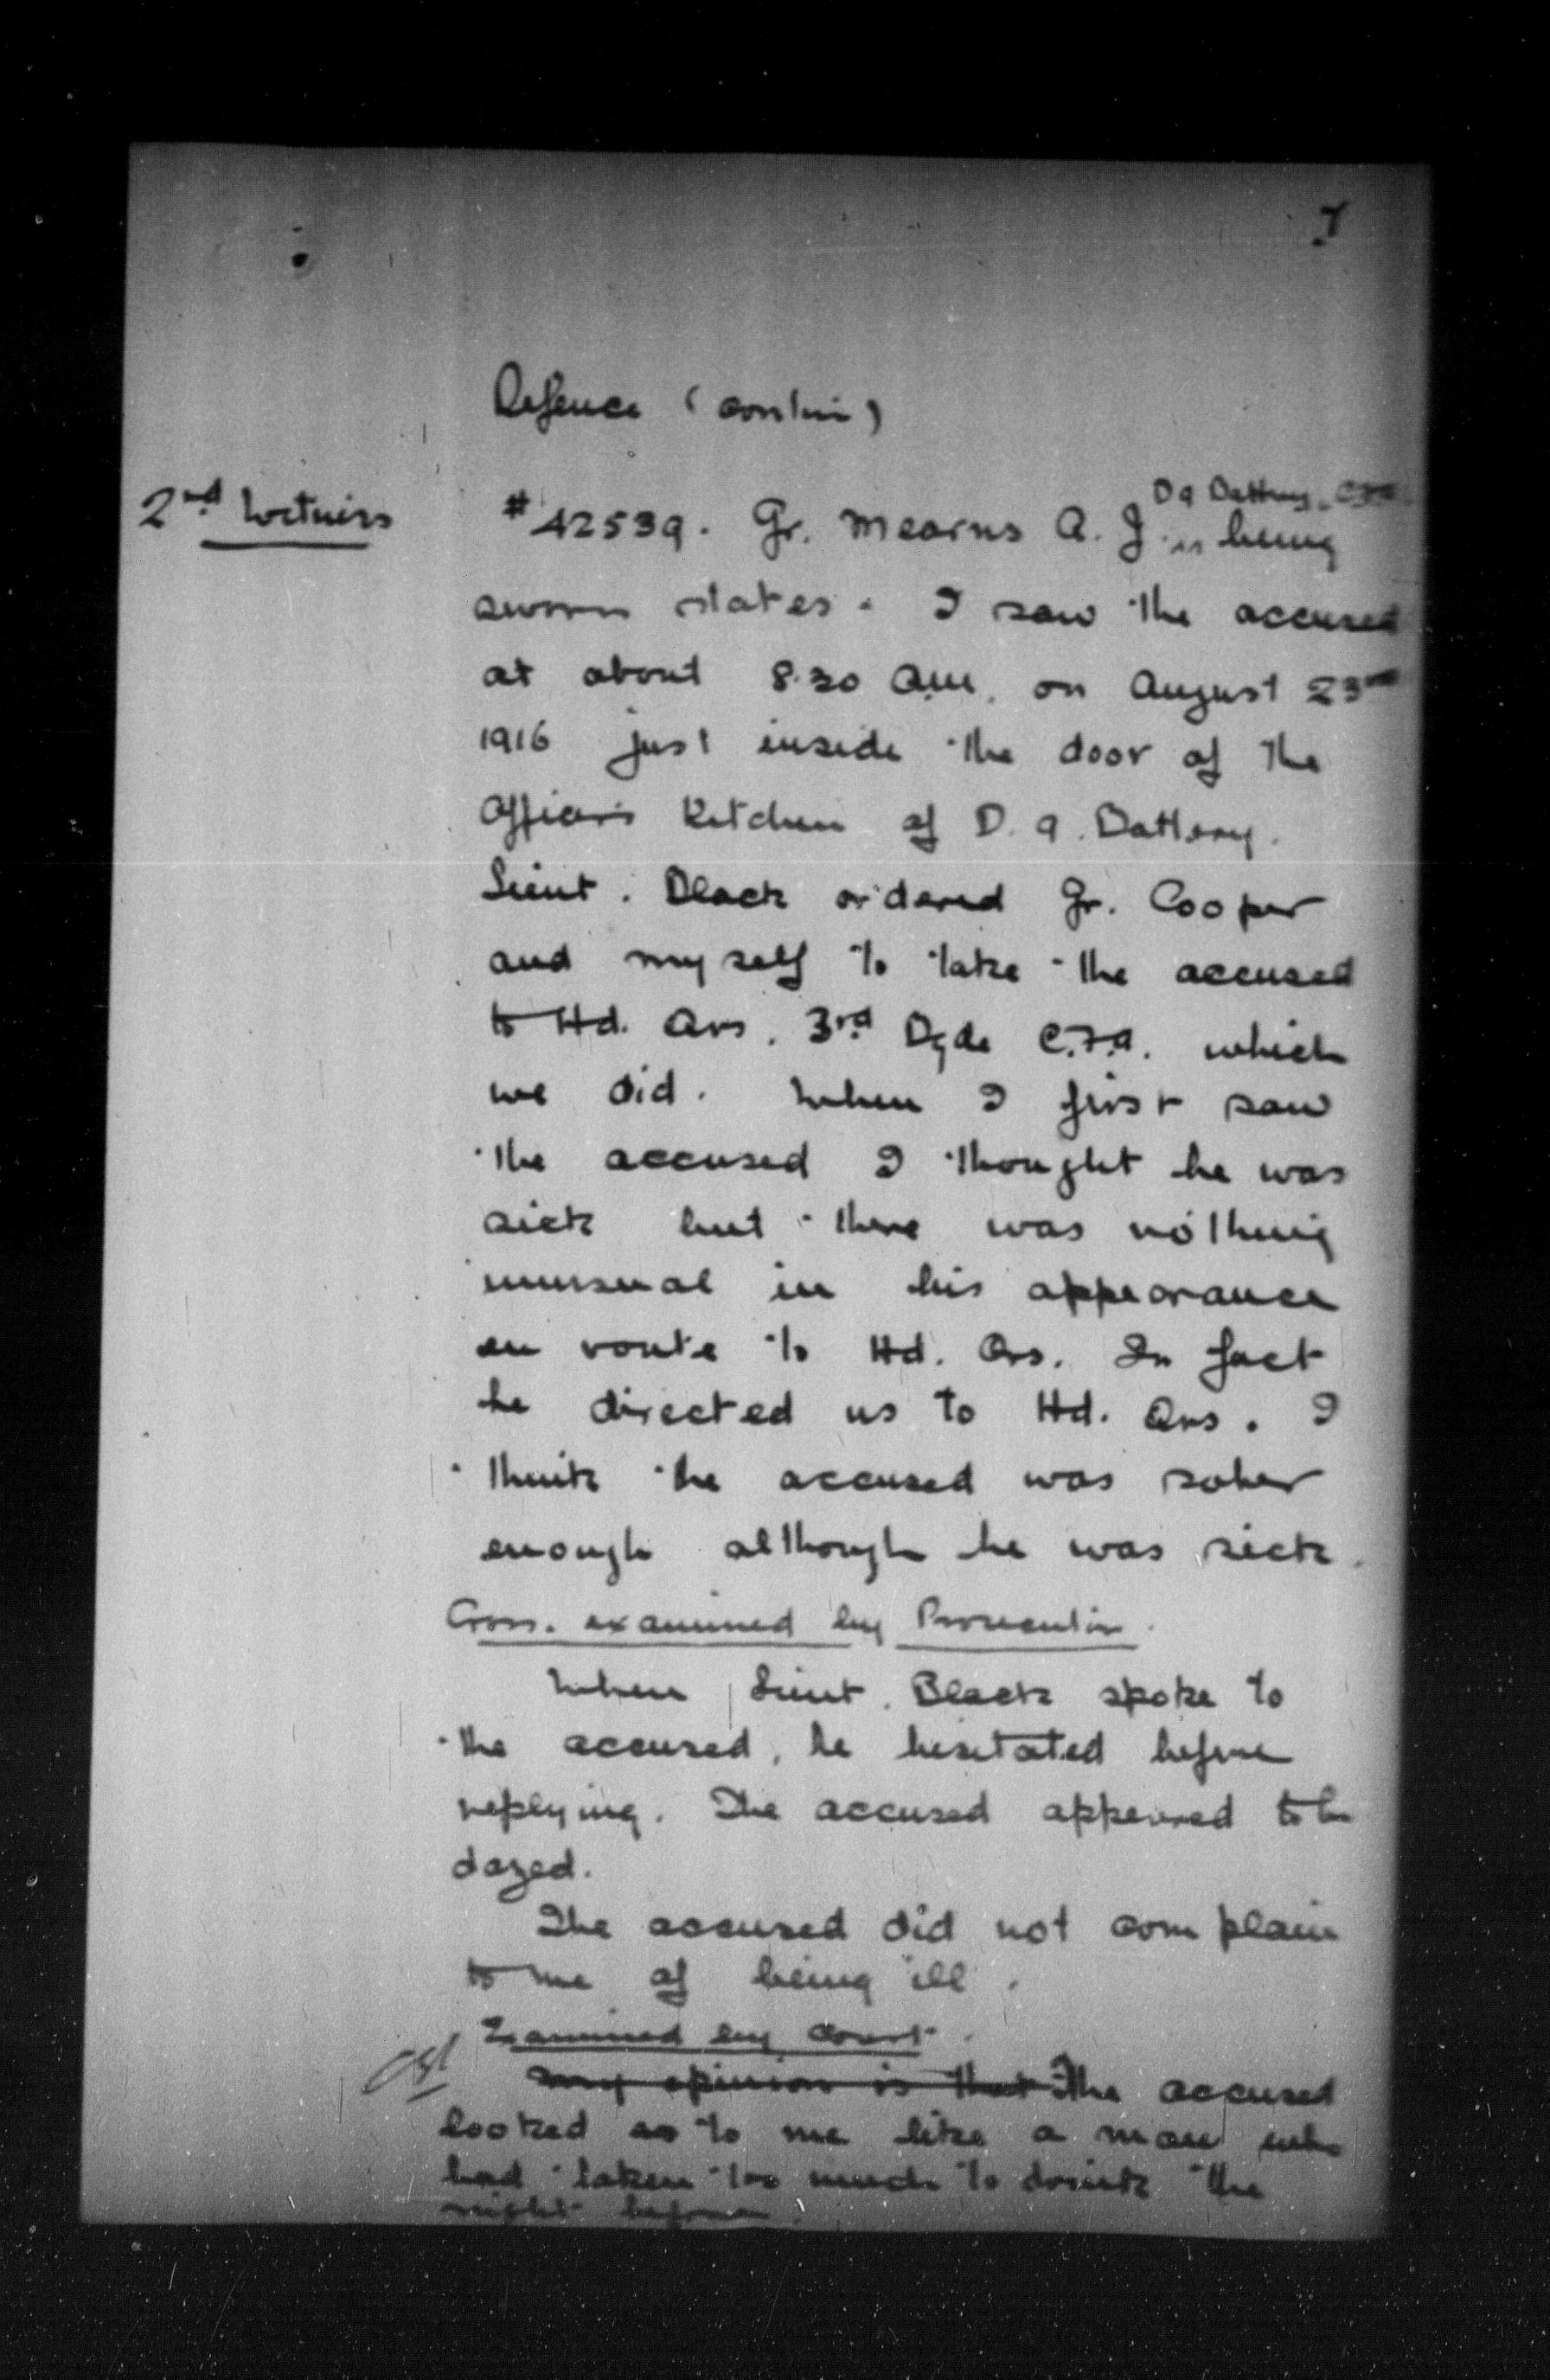 7
Defence (contin)
2nd Witness
D 9 Battery. C.F.A.
#42539. Gr. Mearns A. J. being
sworn states. I saw the accused
at about 8.30 am. on August 23rd
1916 just inside the door of the
Officer's Kitchen of D. 9. Battery.
Lieut. Black ordered Gr. Cooper
and myself to take the accused
to Hd. Qrs. 3rd Bgde C.F.A. which
we did. When I first saw
the accused I thought he was
sick but there was nothing
unusual in his appearance
en route to Hd. Qrs. In fact
he directed us to Hd. Qrs. I
think the accused was sober
enough although he was sick.
Cross. examined by Prosecution.
When Lieut. Black spoke to
the accused, he hesitated before
replying. The accused appeared to be
dazed.
The accused did not complain
to me of being ill.
Examined by Court.
My opinion is that The accused
looked as to me like a man who
had taken too much to drink the
night before.